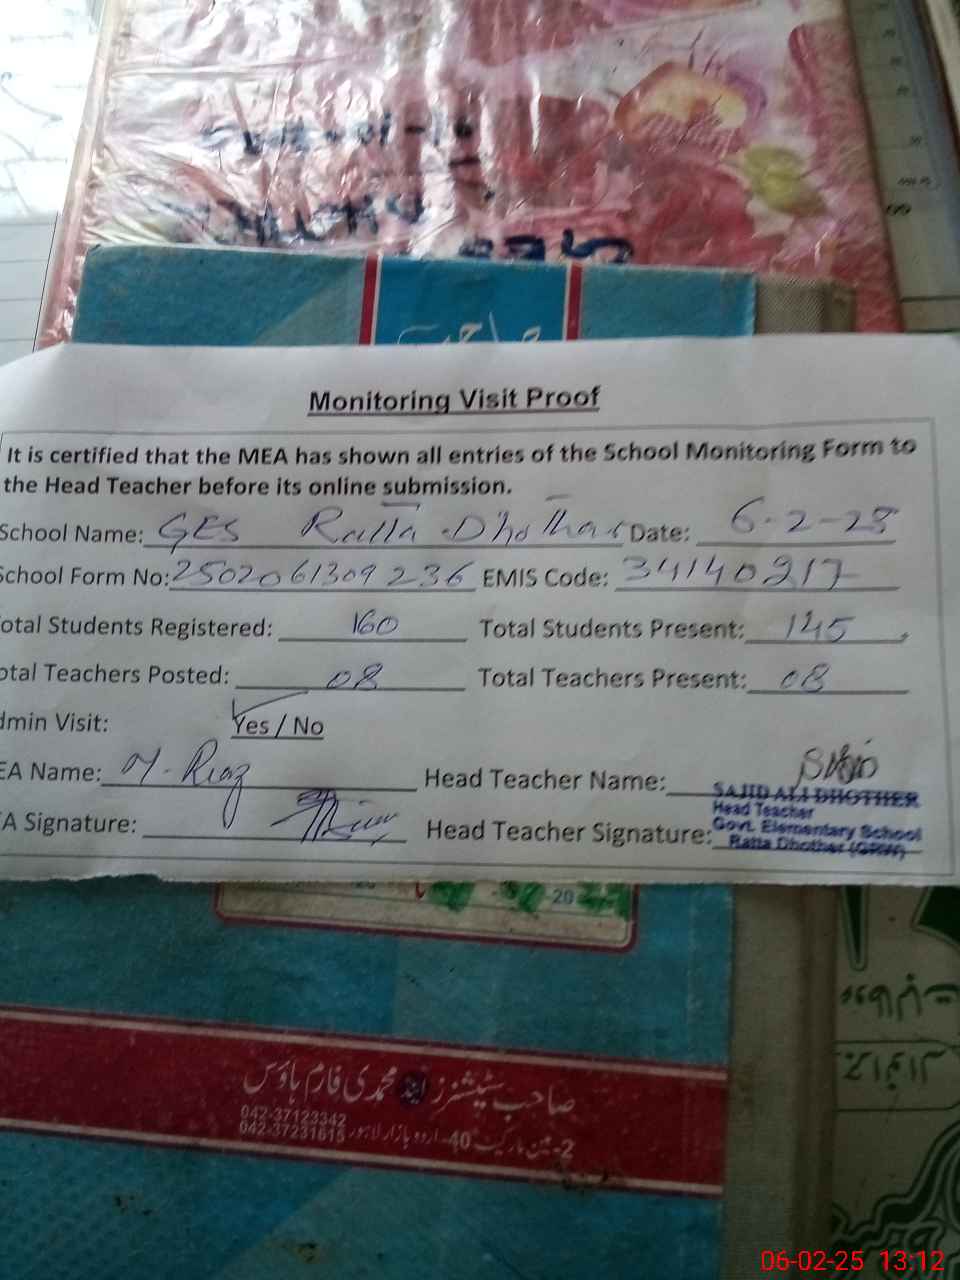 Monitoring Visit Proof
It is certified that the MEA has shown all entries of the School Monitoring Form to
the Head Teacher before its online submission.
School Name: GES Ratta Dhothar Date: 6-2-25
School Form No: 2502061309236 EMIS Code: 34140217
otal Students Registered: 160 Total Students Present: 145
otal Teachers Posted: 08 Total Teachers Present: 08
dmin Visit: Yes / No
EA Name: M. Riaz Head Teacher Name:
SAJID ALI DHOTHER
Head Teacher
A Signature: Head Teacher Signature: Govt. Elementary School
Ratta Dhother (GRW)
20
صاحب سٹیشنرز اینڈ محمدی فارم ہاؤس
042-37123342
042-37231615
2- 40-اردو بازار لاہور
06-02-25 13:12